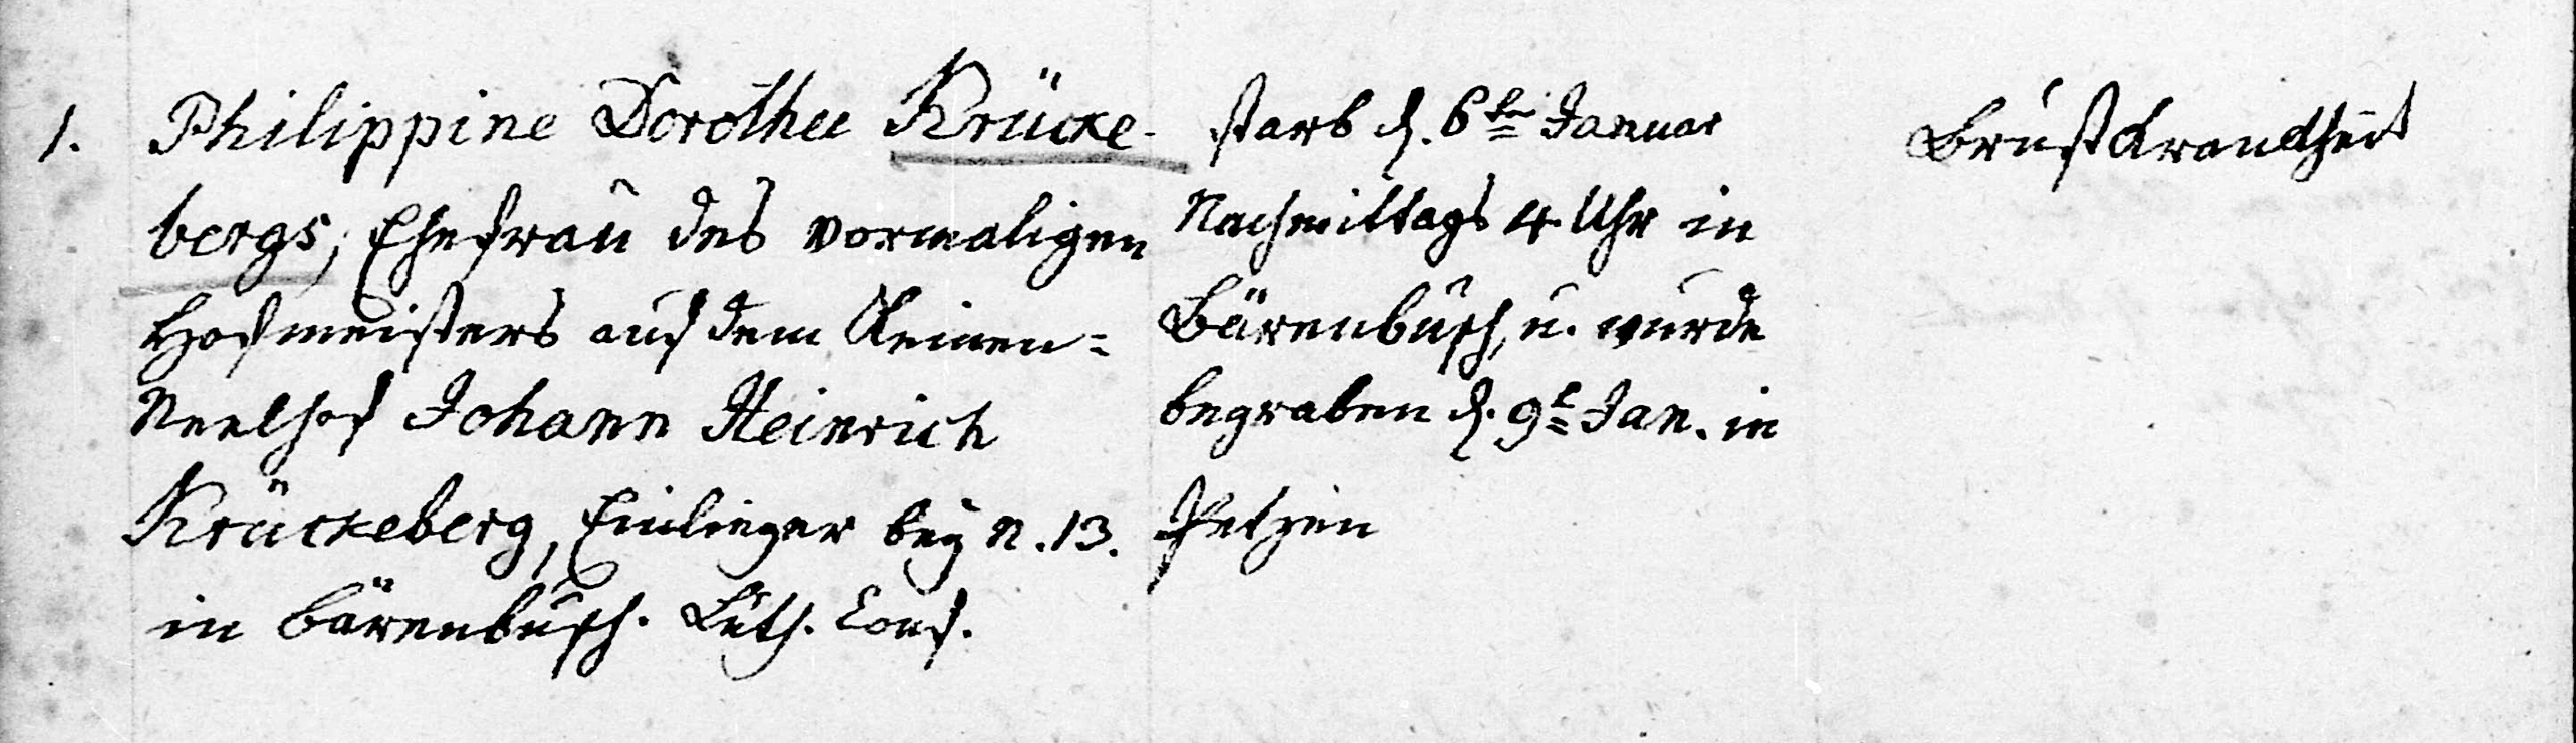 1. Philippine Dorothee Krücke-
bergs, Ehefrau des vormaligen
Hofmeisters auf dem Kleinen=
Neelhof Johann Heinrich
Krückeberg, Einlieger bey N. 13.
in Bärenbusch. Luth. Conf.
starb d. 6ten Januar
Nachmittags 4 Uhr in
Bärenbusch, u. wurde
begraben d. 9t Jan. in
Petzen
Brustkrankheit